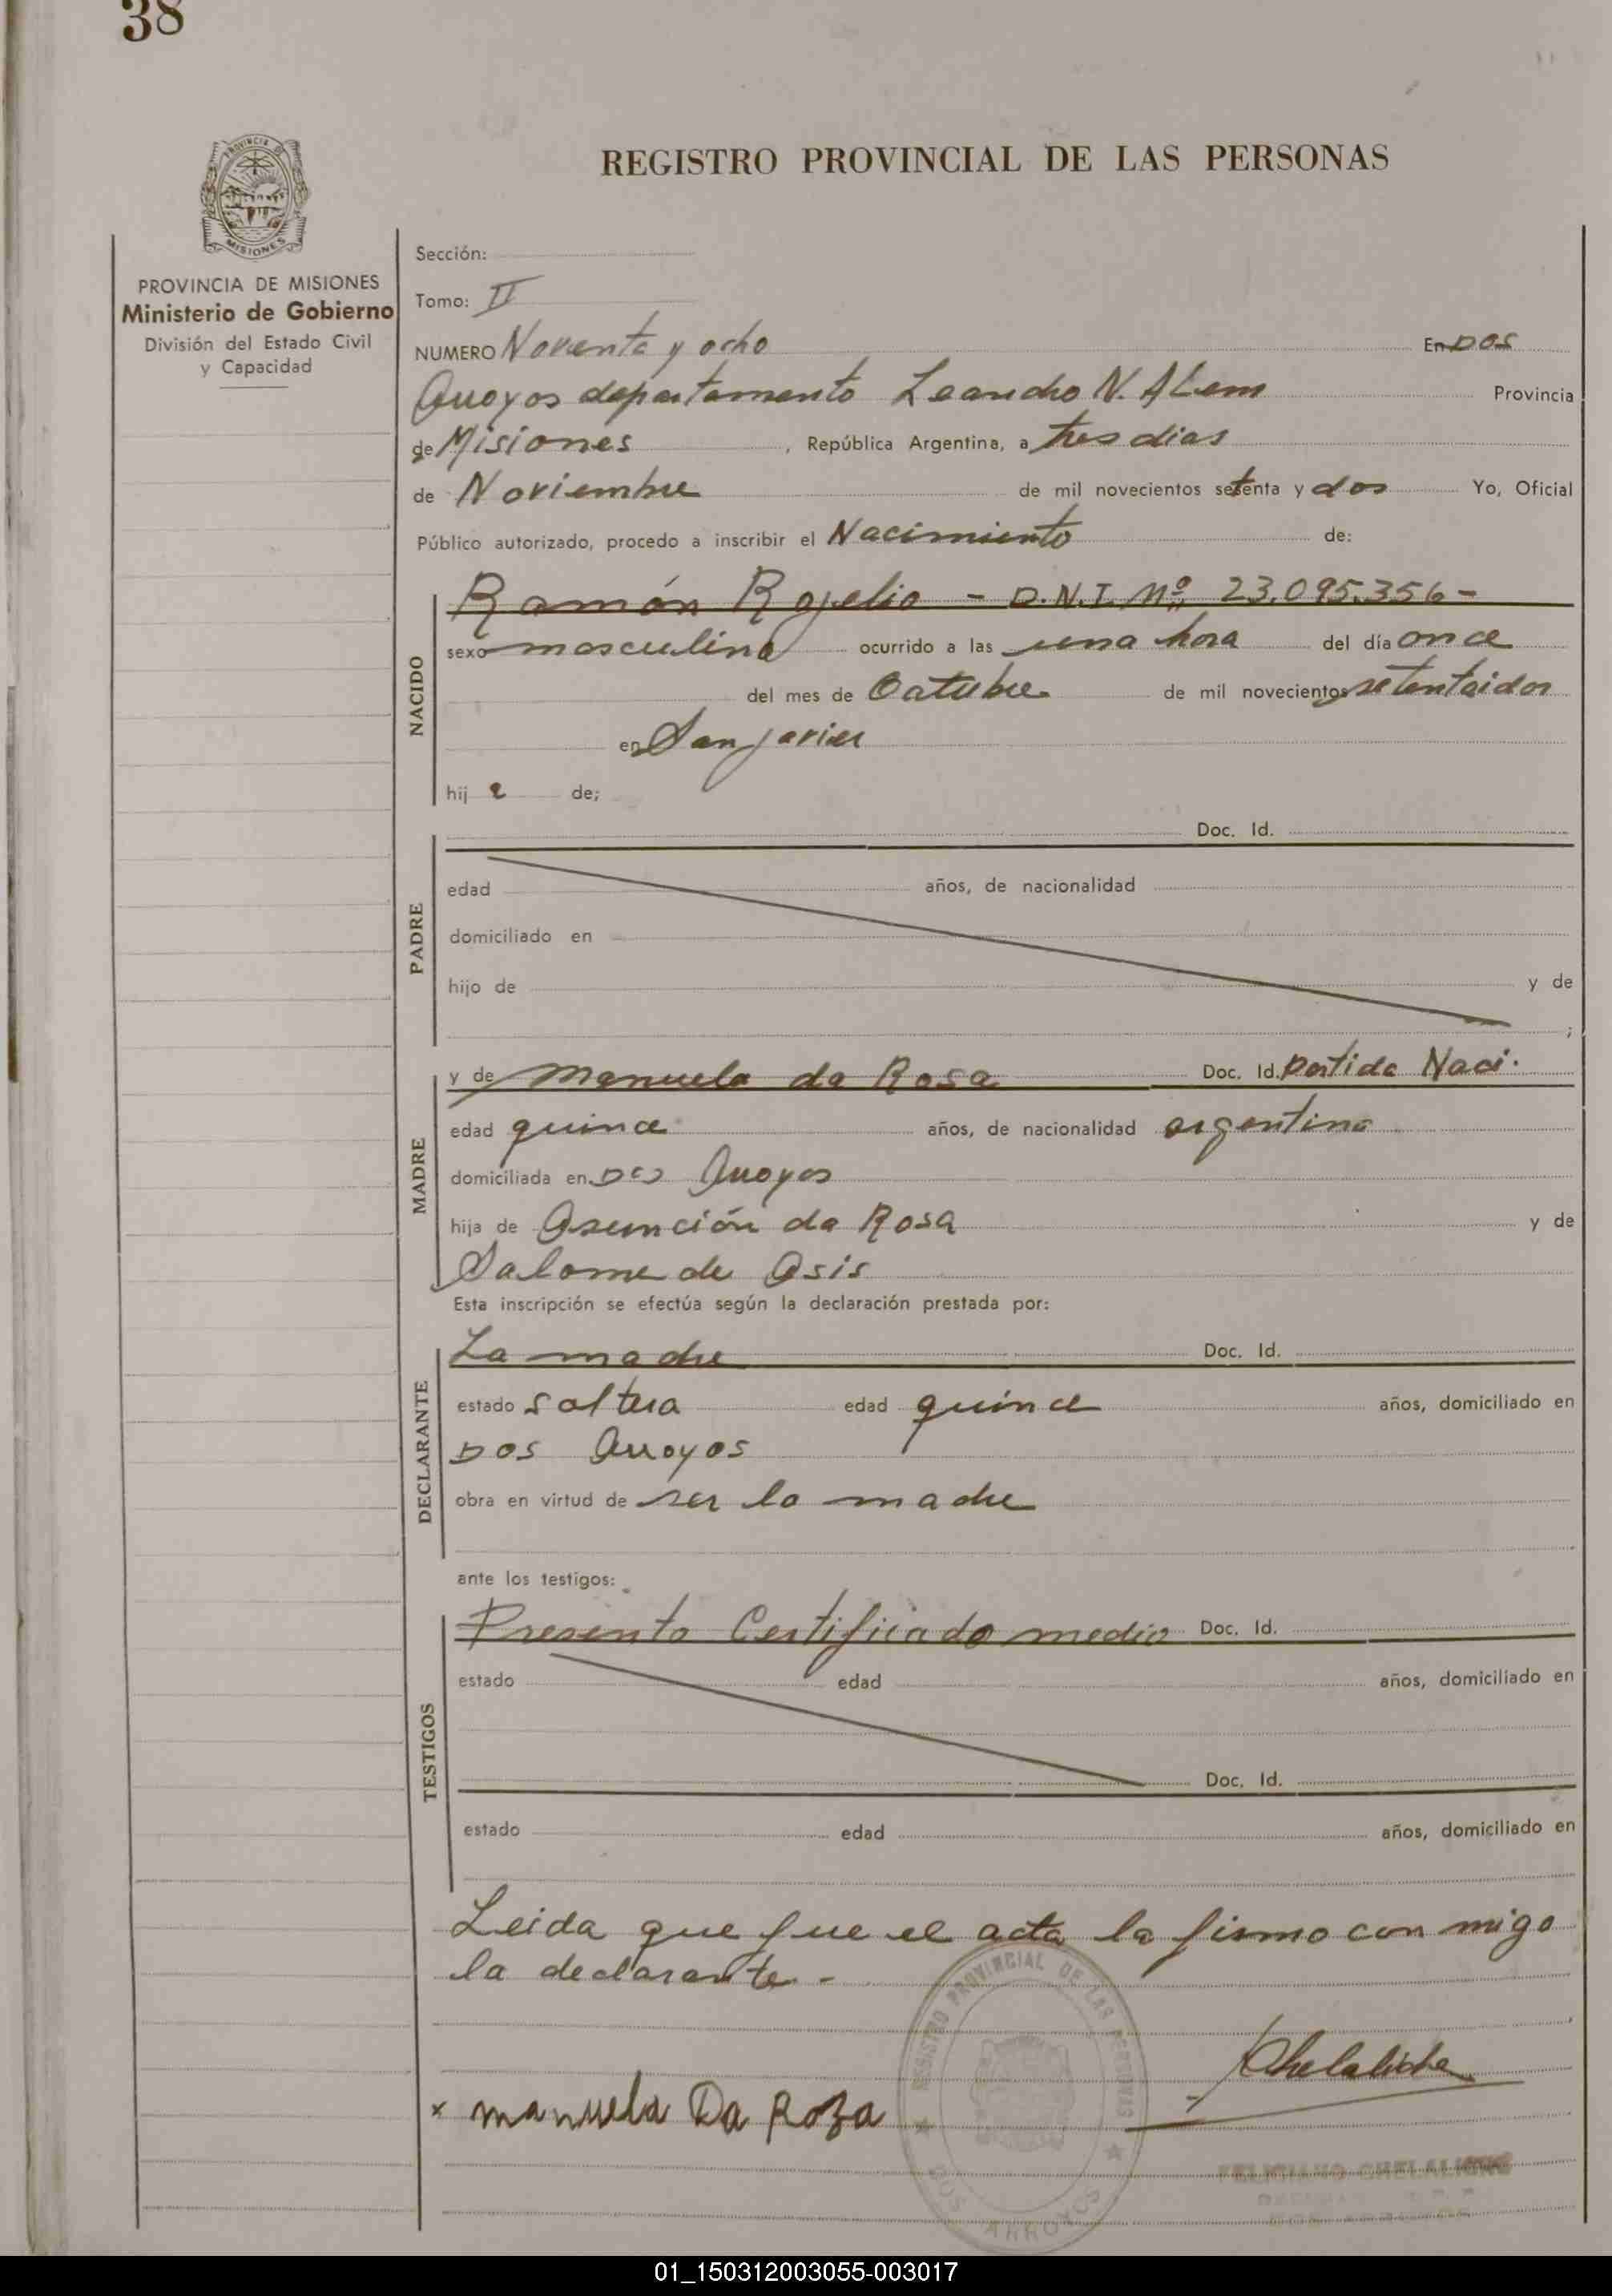 38
REGISTRO PROVINCIAL DE LAS PERSONAS
PROVINCIA DE MISIONES
Ministerio de Gobierno
División del Estado Civil
y Capacidad
Sección:
Tomo: II
NUMERO Noventa y ocho En DOS
Arroyos departamento Leandro N. ALem Provincia
de Misiones , República Argentina, a tres dias
de Noviembre de mil novecientos setenta y dos Yo, Oficial
Público autorizado, procedo a inscribir el Nacimiento de:
NACIDO
Ramón Rogelio - D.N.I. Nº 23.095.356-
sexo masculino ocurrido a las una hora del día once
del mes de Octubre de mil novecientos setentaidos
en San javier
hij o de;
PADRE
Doc. Id.
edad años, de nacionalidad
domiciliado en
hijo de y de
;
MADRE
y de Manuela da Rosa Doc. Id. Partida Naci.
edad quince años, de nacionalidad argentina
domiciliada en Dos Arroyos
hija de Asunción da Rosa y de
Salome de Asis
Esta inscripción se efectúa según la declaración prestada por:
DECLARANTE
La madre Doc. Id.
estado soltera edad quince años, domiciliado en
DOS Arroyos
obra en virtud de ser la madre
ante los testigos:
TESTIGOS
Presento Certificado medio Doc. Id.
estado edad años, domiciliado en
Doc. Id.
estado edad años, domiciliado en
Leida que fue el acta la firmo con migo
la declarante -
REGISTRO PROVINCIAL DE LAS PERSONAS
DOS ARROYOS
x manuela Da Roza
01_150312003055-003017